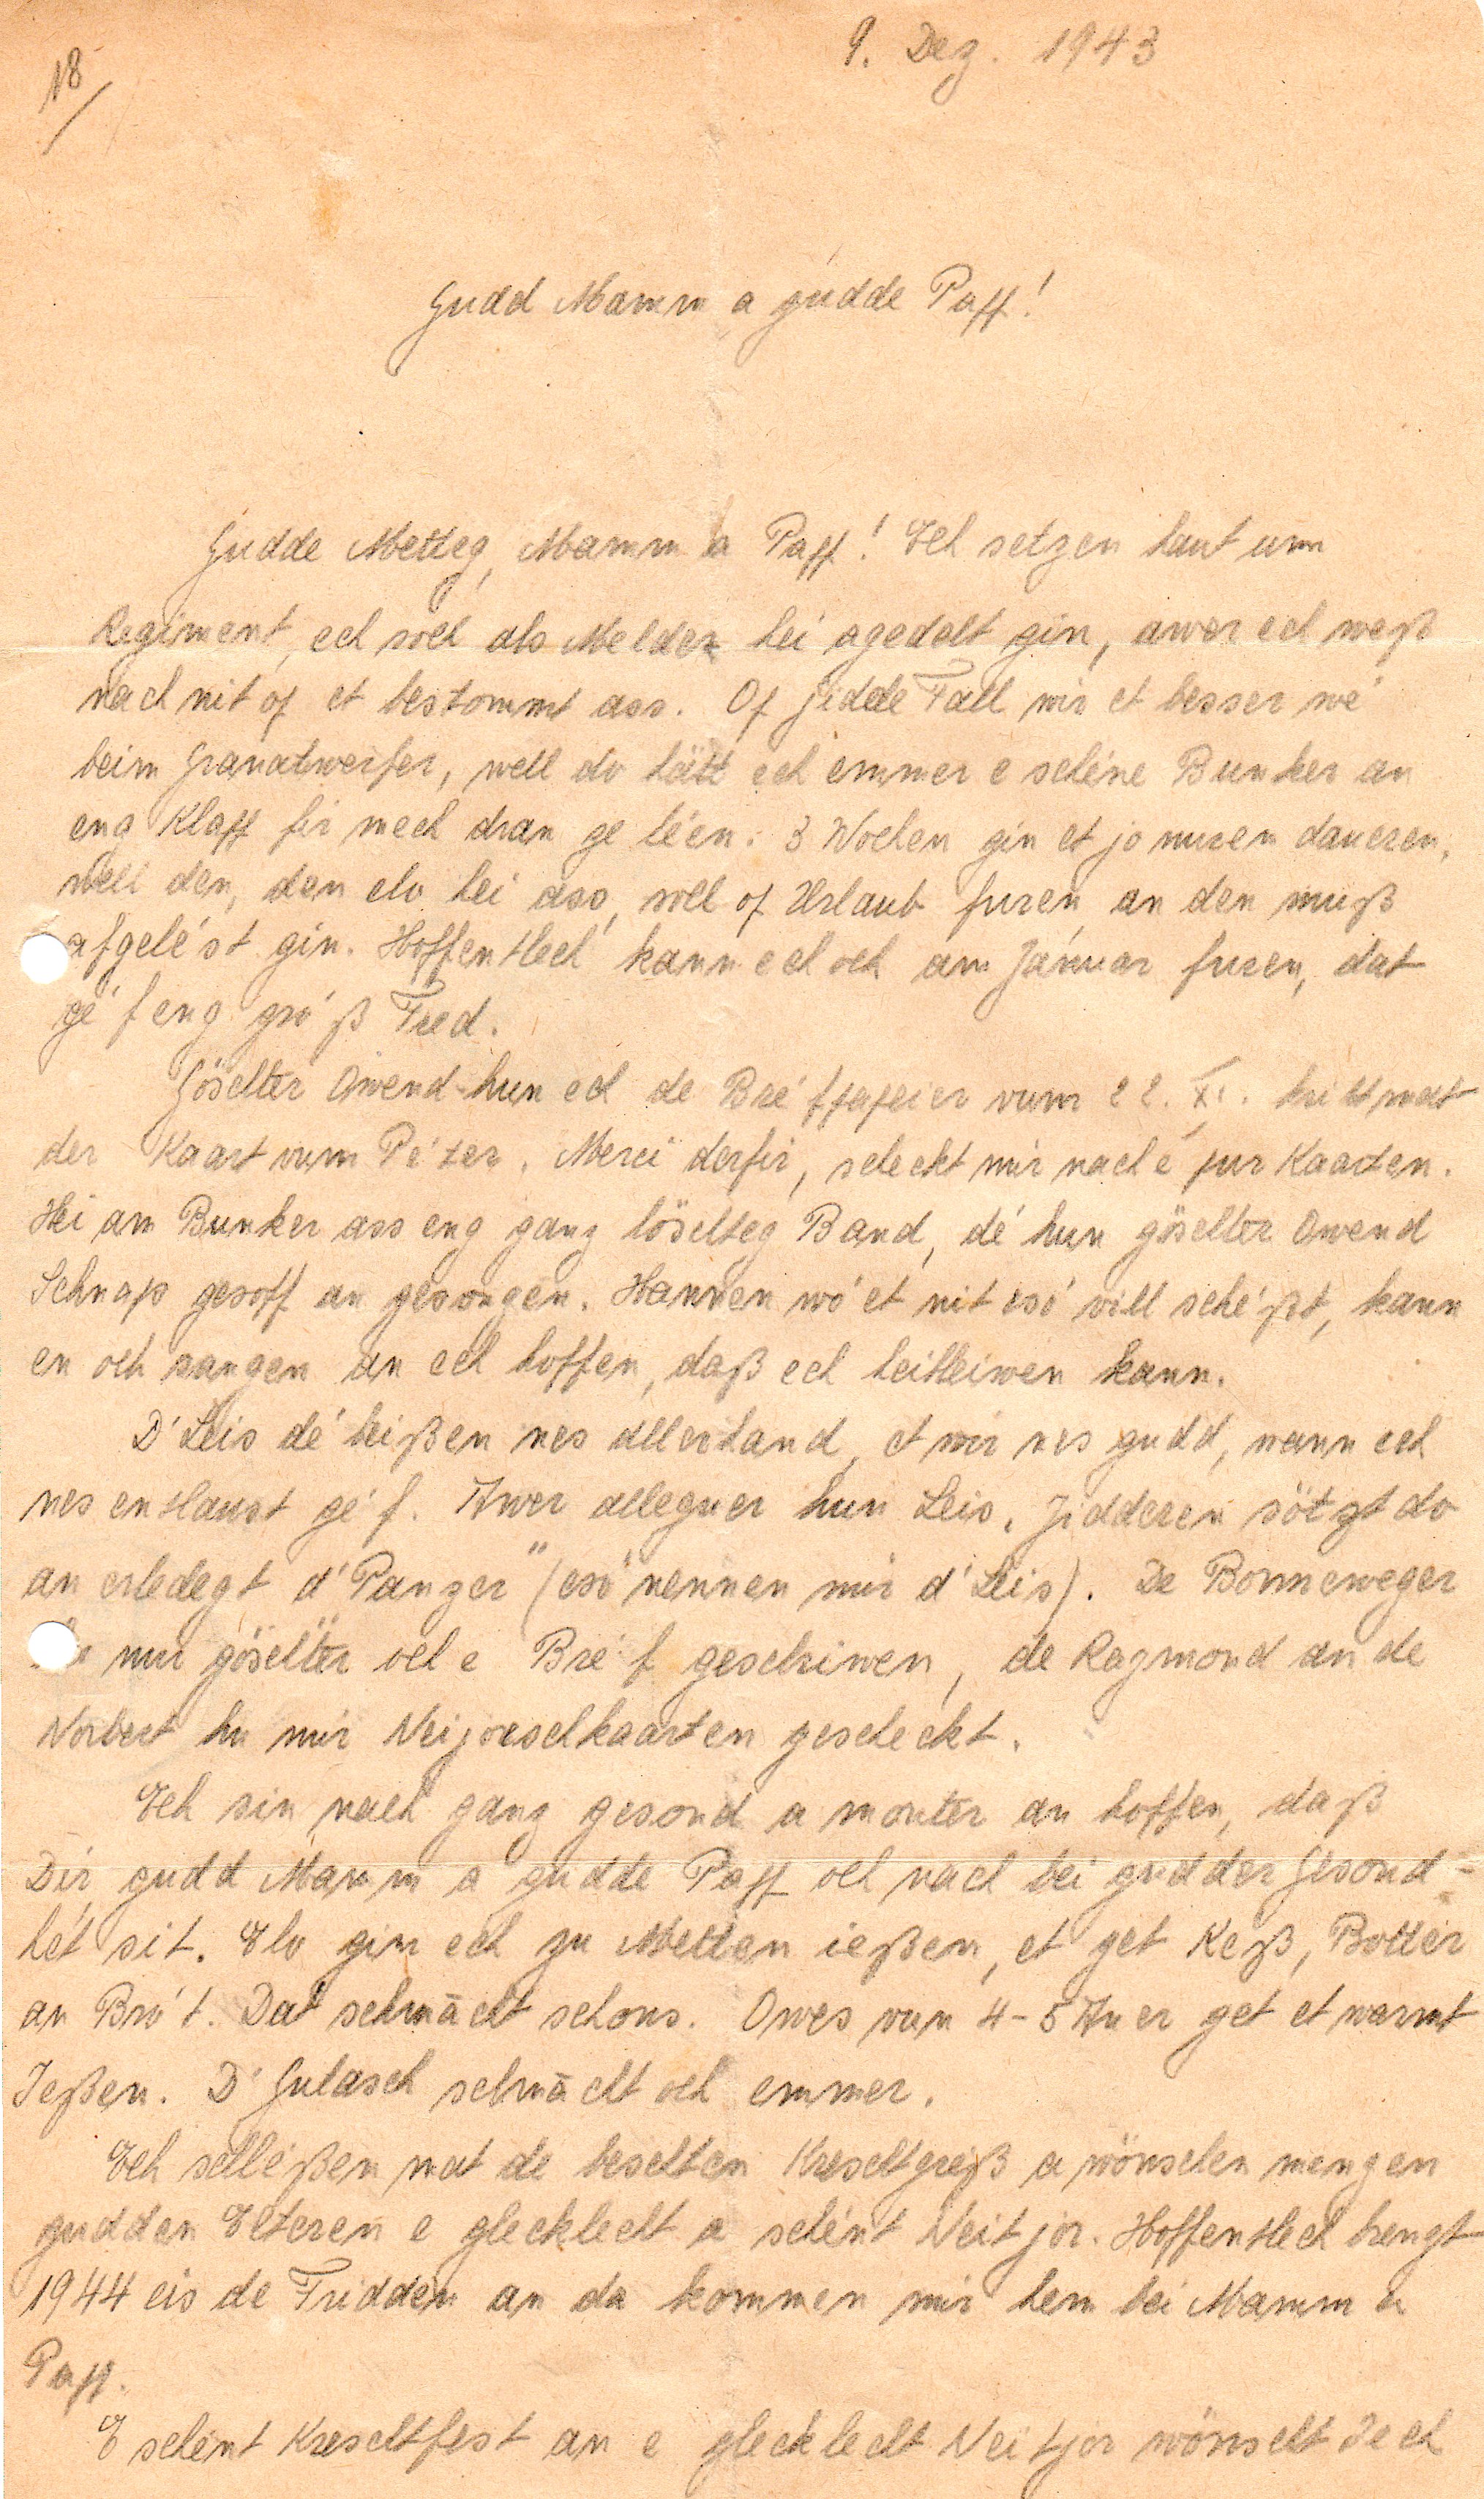 9. Dez. 1943
18/
Gudd Mamm a gudde Papp!
Gudde Metteg, Mamm a Papp! Ech setzen haut um
Regiment, ech soll als Melder hei agedelt gin, awer ech weß
nach nit of et bestommt ass. Of jidde Fall wir et besser wé
beim Granatwerfer, well do hätt ech emmer e schéne Bunker an
eng Klapp fir mech dran ze léen. 3 Wochen gin et jo nuren daueren,
well den, den elo hei ass, soll of Urlaub furen an den muß
afgelést gin. Hoffentlech kann ech och am Januar furen, dat
gé f eng gró ß Fred.
Göschter Owend hun ech de Bré fpapeier vum 22. XI. kritt mat
der Kaart vum Péter. Merci derfir, scheckt mir nach é pur Kaarten.
Hei am Bunker ass eng ganz löschteg Band, dé hun göschter Owend
Schnaps gesoff an gesongen. Hannen wó et nit esó vill schéßt, kann
en och sangen an ech hoffen, daß ech heibleiwen kann.
D'Leis dé beißen nes allerhand, et wir nes gudd, wann ech
nes entlaust gé f. Awer alleguer hun Leis. Jidderen sötzt do
an erledegt d'"Panzer" (esó nennen mir d'Leis). De Bonneweger
mir göschter och e Bré f geschriwen, de Raymond an de
Norbert hu mir Neijorschkaarten gescheckt.
Ech sin nach ganz gesond a monter an hoffen, daß
Dir gudd Mamm a gudde Papp och nach bei gudder Gesond-
hét sit. Elo gin ech zu Metten ießen, et get Keß, Botter
an Bró t. Dat schmācht schons. Owes vun 4-5 Auer get et warmt
Ießen. D'Gulasch schmācht och emmer.
Ech schléßen mat de beschten Kreschtgreiß a wönschen mengen
gudden Elteren e glecklecht a schént Neitjor. Hoffentlech brengt
1944 eis de Fridden an da kommen mir hem bei Mamm a
Papp.
E schént Kreschtfest an e glecklecht Neitjor wönscht Iech